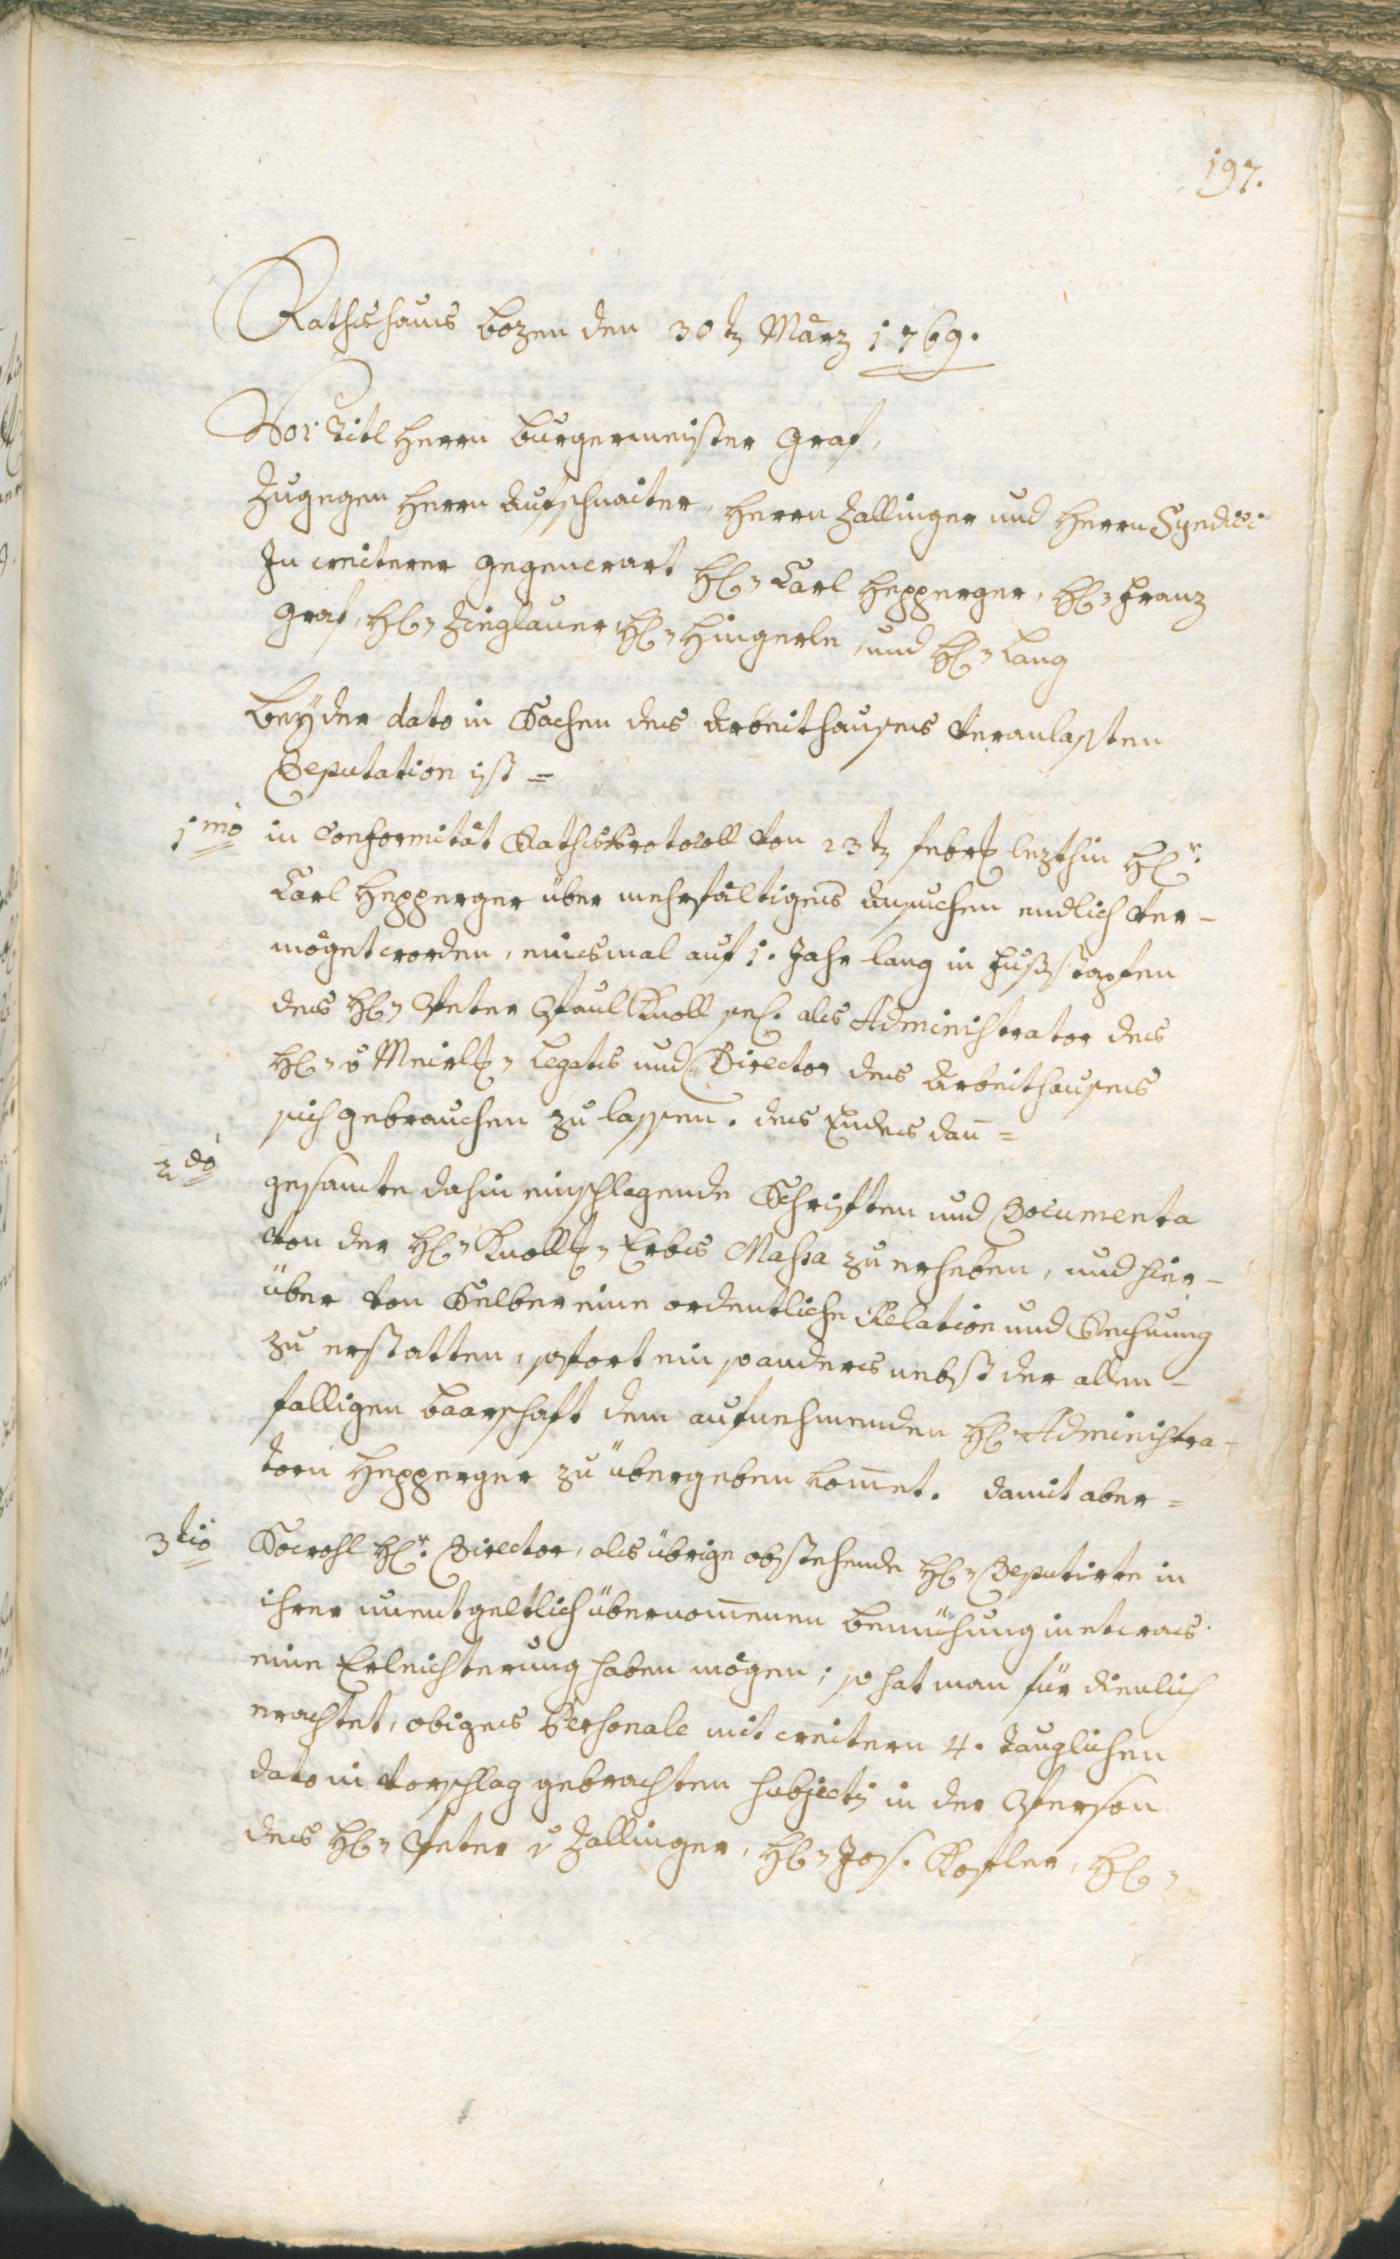 197.
Rathshaus Bozen den 30t März 1769.
Vor Titl Herrn Burgermeister Graf,
Zugegen Herrn Aufschnaiter, Herrn Zallinger und Herrn Syndici
In weiterer gegenwart H: Carl Hepperger, H: Franz
Graf, H: Zieglauer, H: Hingerle, und H: Lang
Bey der dato in Sachen des Arbeithauses veranlasten
Deputation ist =
1mo in Conformität Raths Protocoll von 23t Febr: lezthin Hr:
Carl Hepperger über mehrfältiges ansuchen endlich ver-
möget worden, einsmal auf 1. Jahr lang in Fußstapfen
des H: Peter Paul Knoll sel: als Administrator des
H: v Meirl: Legats und Director des Arbeithauses
sich gebrauchen zu lassen. des Endes dan̄ =
2do gesamte dahin einschlagende Schriften und Documenta
von der H: Knoll: Erbs Massa zu erheben, und hier-
über von Selber eine ordentliche Relation und Rechnung
zu erstatten, sofort ein so anders nebst der allen-
falligen Baarschaft dem aufnehmenden H: Administra-
torn Hepperger zu übergeben kom̄et. Damit aber =
3tio Sowohl Hr: Director, als übrige obstehende H: Deputirte in
ihrer unentgeltlich übernom̄enen Bemühung in etwas
eine Erleichterung haben mögen; so hat man für dienlich
erachtet, obiges Personale mit weitern 4. tauglichen
dato in Vorschlag gebrachten Subjectis in der Person
des H: Peter v Zallinger, H: Jos. Kofler, H: